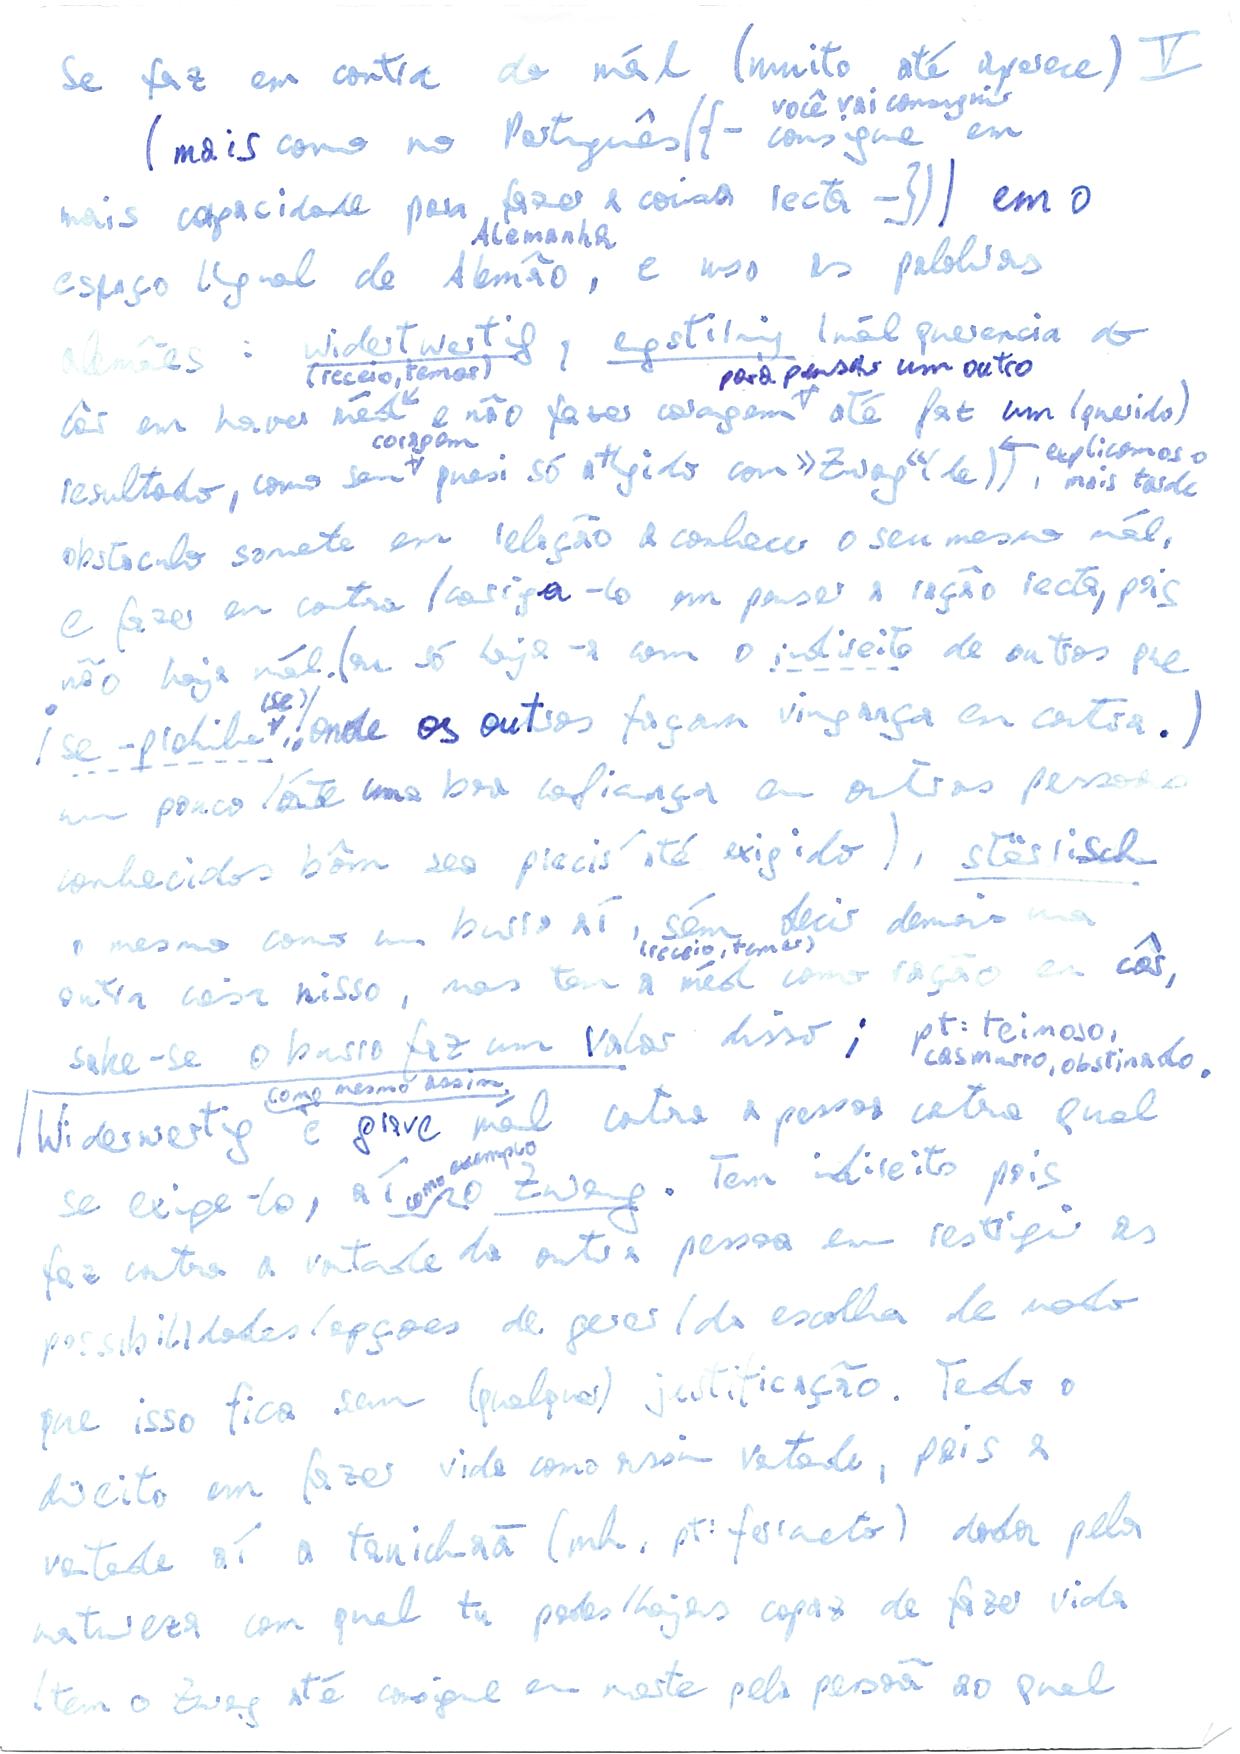 Se faz em contra do mál (muito até aparece) V
você vai conseguir
(mais como no Português/{- consigue em
mais capacidade para fazer a coisa recta -})) em o
Alemanha
espaço lÿgual de Alemão, e uso as palabras
alemães : widertwertig,
(receio, temor) para pensar um outro
câs em haver méd e não fazer coragem até faz um (querido)
coragem explicamos o
resultado, como sem quasi só atÿgido com »Zwag“ (de)), mais tarde
obstaculo somete em relação a conhecer o seu mesmo mál,
e fazer em contra /corriga-lo em pensar a ração recta, pois
não haja mál. (ou só haja-a com o indireito de outros que
(se)
se-prohibe, onde os outros façam vingança em contra.)
um pouco /até uma boa cofiança em outras pessoas
conhecidos bôm sea precis' até exigido), störrisch
o mesmo como um burro aí, sém decir demais uma
(receio, temor)
outra coisa nisso, mas tem a méd como ração em câs,
sabe-se o burro faz um valor disso; pt: teimoso,
casmurro, obstinado.
como mesmo assim,
Widerwertig é grave mál contra a pessoa catra qual
como exemplo
se exige-lo, aí no Zwang. Tem indireito pois
faz contra a vontade da outra pessoa em restigir as
possibilidades/opçoes de gerer/da escolha de modo
que isso fica sem (qualquer) justificação. Tedo o
direito em fazer vida como assim votade, pois a
votade aí a (mh. pt: ferraeto) dada pela
natureza com qual tu podes/hajas capaz de fazer vida
(tem o Zwag até consigue em morte pela pessoã ao qual